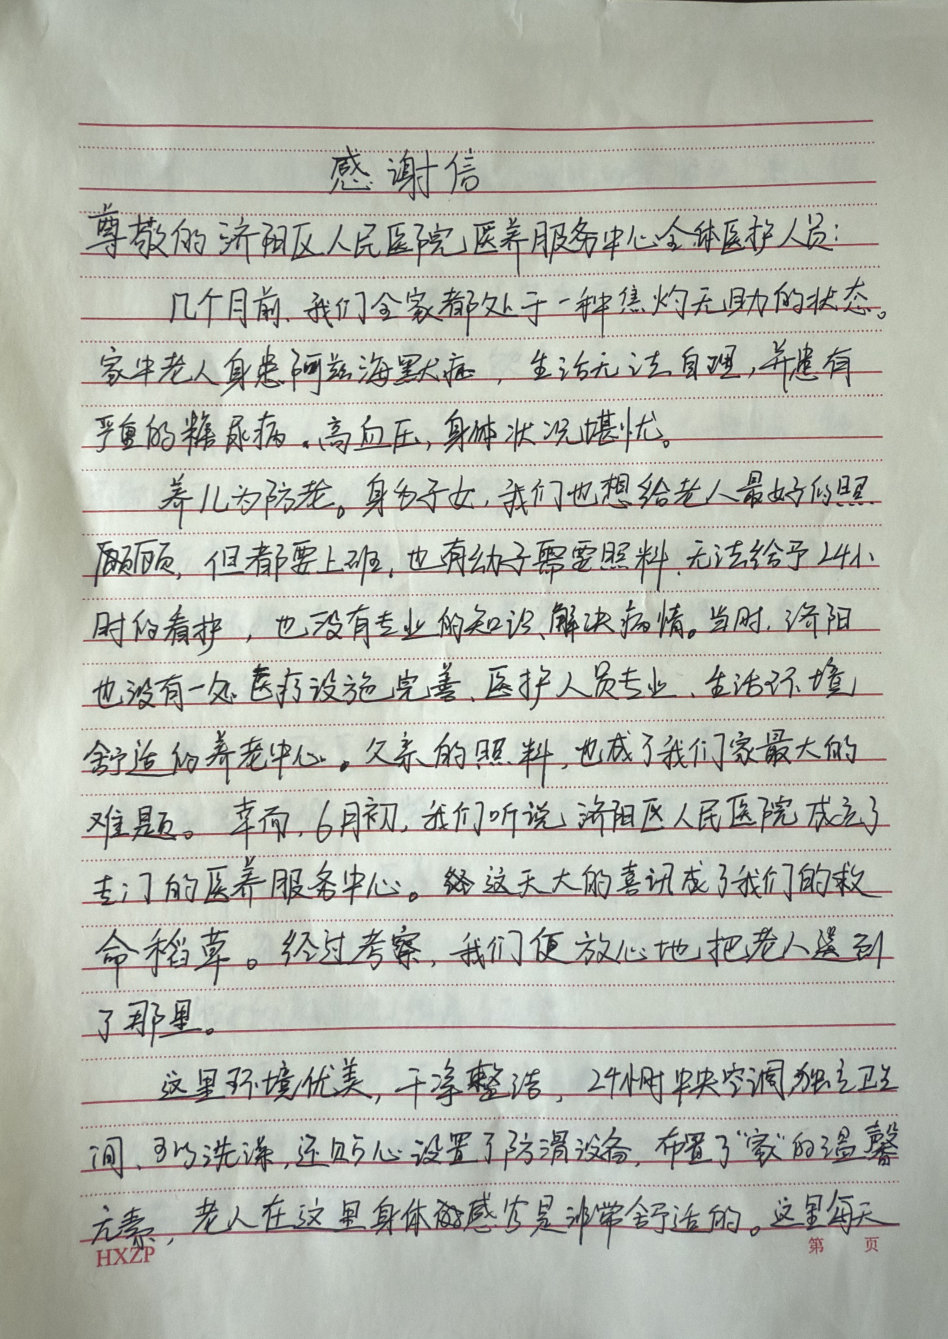 感谢信
尊敬的济阳区人民医院医养服务中心全体医护人员：
几个月前、我们全家都处于一种焦灼无助的状态。
家中老人身患阿兹海默症，生活无法自理，并患有
严重的糖尿病、高血压，身体状况堪忧。
养儿为防老。身为子女，我们也想给老人最好的照
顾，但都要上班，也有幼子需要照料、无法给予24小
时的看护，也没有专业的知识、解决病情。当时，济阳
也没有一处医疗设施完善、医护人员专业、生活环境
舒适的养老中心。父亲的照料，也成了我们家最大的
难题。幸而，6月初，我们听说济阳区人民医院成立了
专门的医养服务中心。这天大的喜讯成了我们的救
命稻草。经过考察，我们便放心地把老人送到
了那里。
这里环境优美，干净整洁，24小时中央空调独立卫生
间、可以洗澡，还贴心设置了防滑设备，布置了“家”的温馨
元素，老人在这里身体的感官是非常舒适的。这里每天
HXZP
第 页